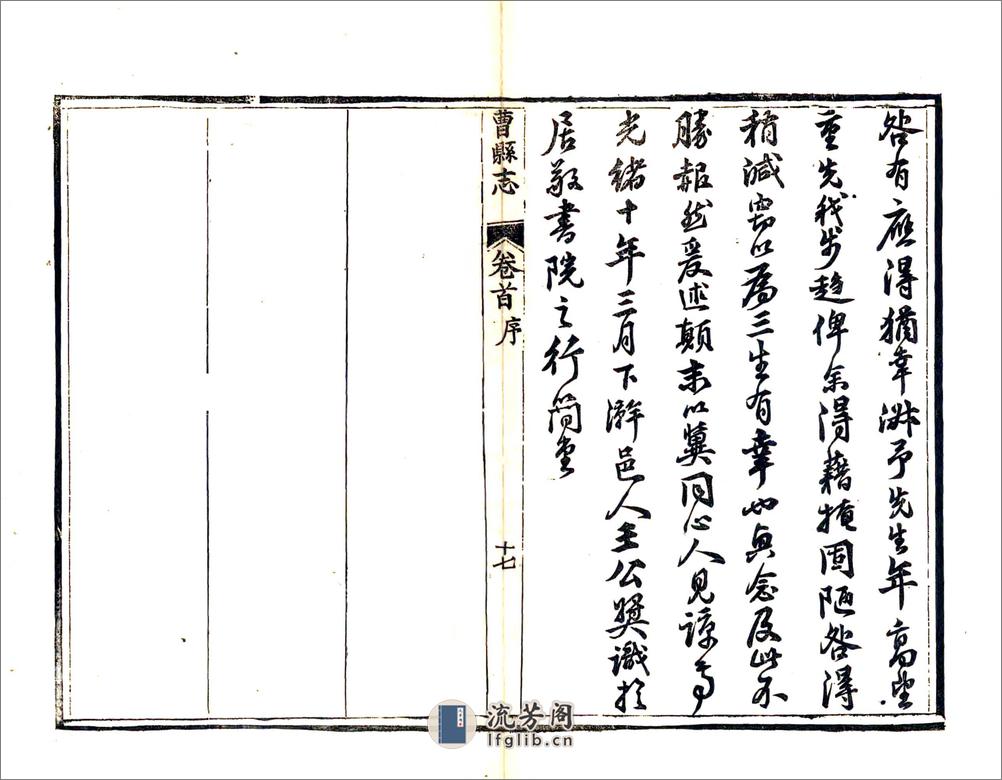 咎有應得猶幸予先生年高望
重先我步趨俾余得藉掩固陋咎得
稍減竊以爲三生有幸也興念及此不
勝赧然爰述顛末以冀同心人見諒焉
光緒十年三月下澣邑人王公奬識於
居敬書院之行簡堂
曹縣志 卷首 序 十七
流芳阁
lfglib.cn